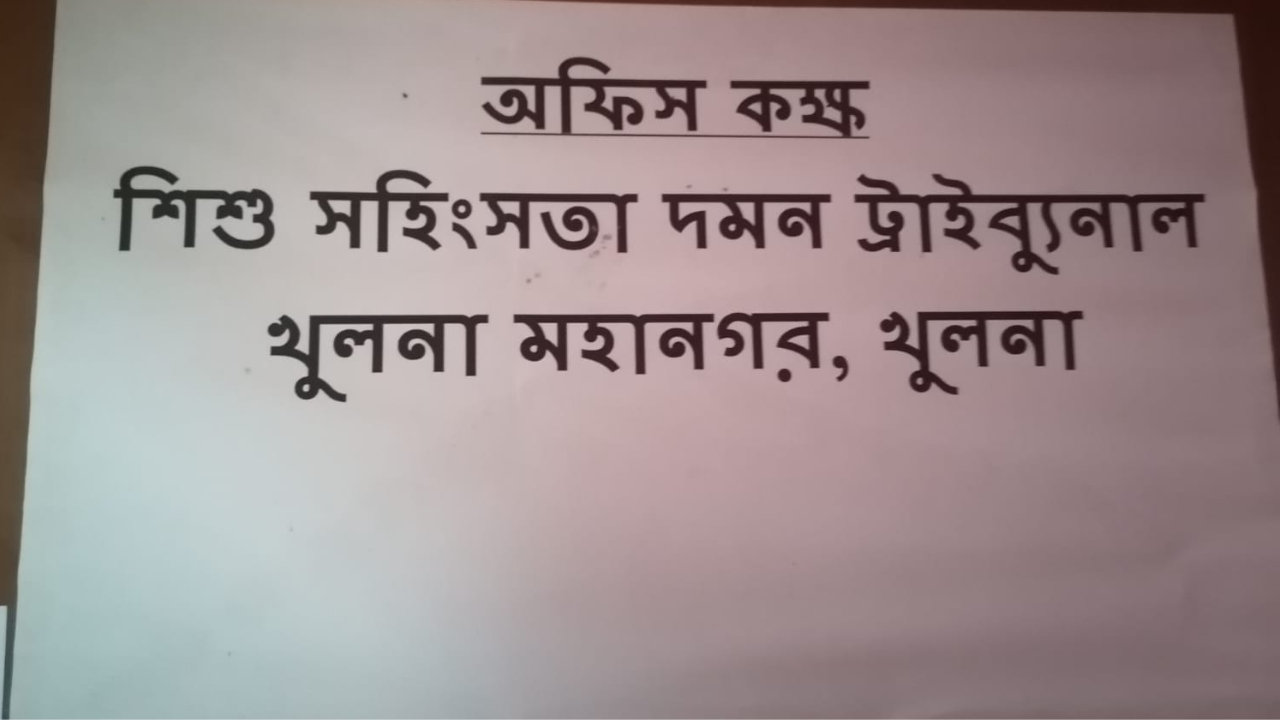 অফিস কক্ষ
শিশু সহিংসতা দমন ট্রাইব্যুনাল
খুলনা মহানগর, খুলনা